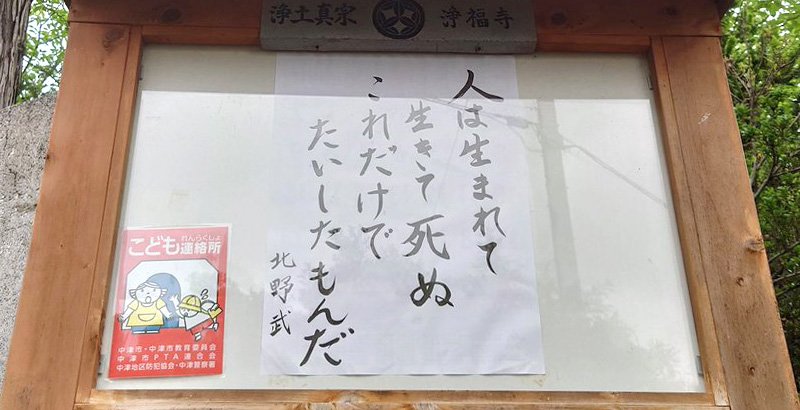 浄土真宗 浄福寺
人は生まれて
生きて死ぬ
これだけで
たいしたもんだ
北野武
れんらくしょ
こども連絡所
中津市・中津市教育委員会
中津市PTA連合会
中津地区防犯協会・中津警察署